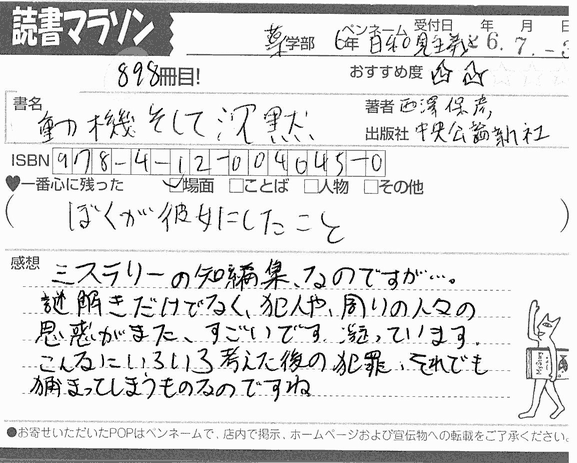 読書マラソン
薬学部 6年 ペンネーム 日和見主義 受付日 年 月 日
6.7.-3
898冊目! おすすめ度 ☆☆
書名 動機そして沈黙
著者 西澤保彦
出版社 中央公論新社
ISBN 978-4-12-004645-0
♥一番心に残った ☑場面 □ことば □人物 □その他
(ぼくが彼女にしたこと)
感想
ミステリーの短編集、なのですが…。
謎解きだけでなく、犯人や、周りの人々の
思惑がまた、すごいです。凝っています。
こんなにいろいろ考えた後の犯罪、それでも
捕まってしまうものなのですね
●お寄せいただいたPOPはペンネームで、店内で掲示、ホームページおよび宣伝物への転載をご了承ください。